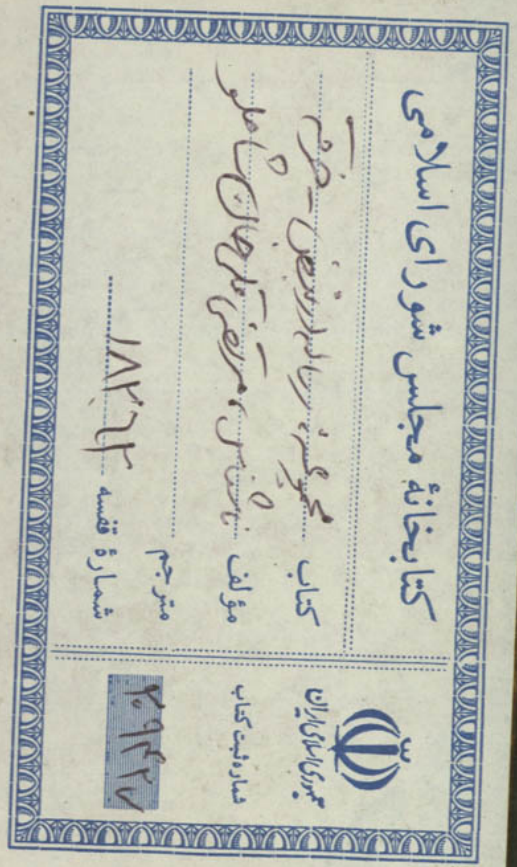 کتابخانهٔ مجلس شورای اسلامی
کتاب مجموعه: رساله در نبض - خرقه
مؤلف ناشناس، مرتضی قلی خان شاملو
مترجم
شمارهٔ قفسه ۱۸۲۶۲
جمهوری اسلامی ایران
شماره ثبت کتاب
۲۰۹۴۲۷